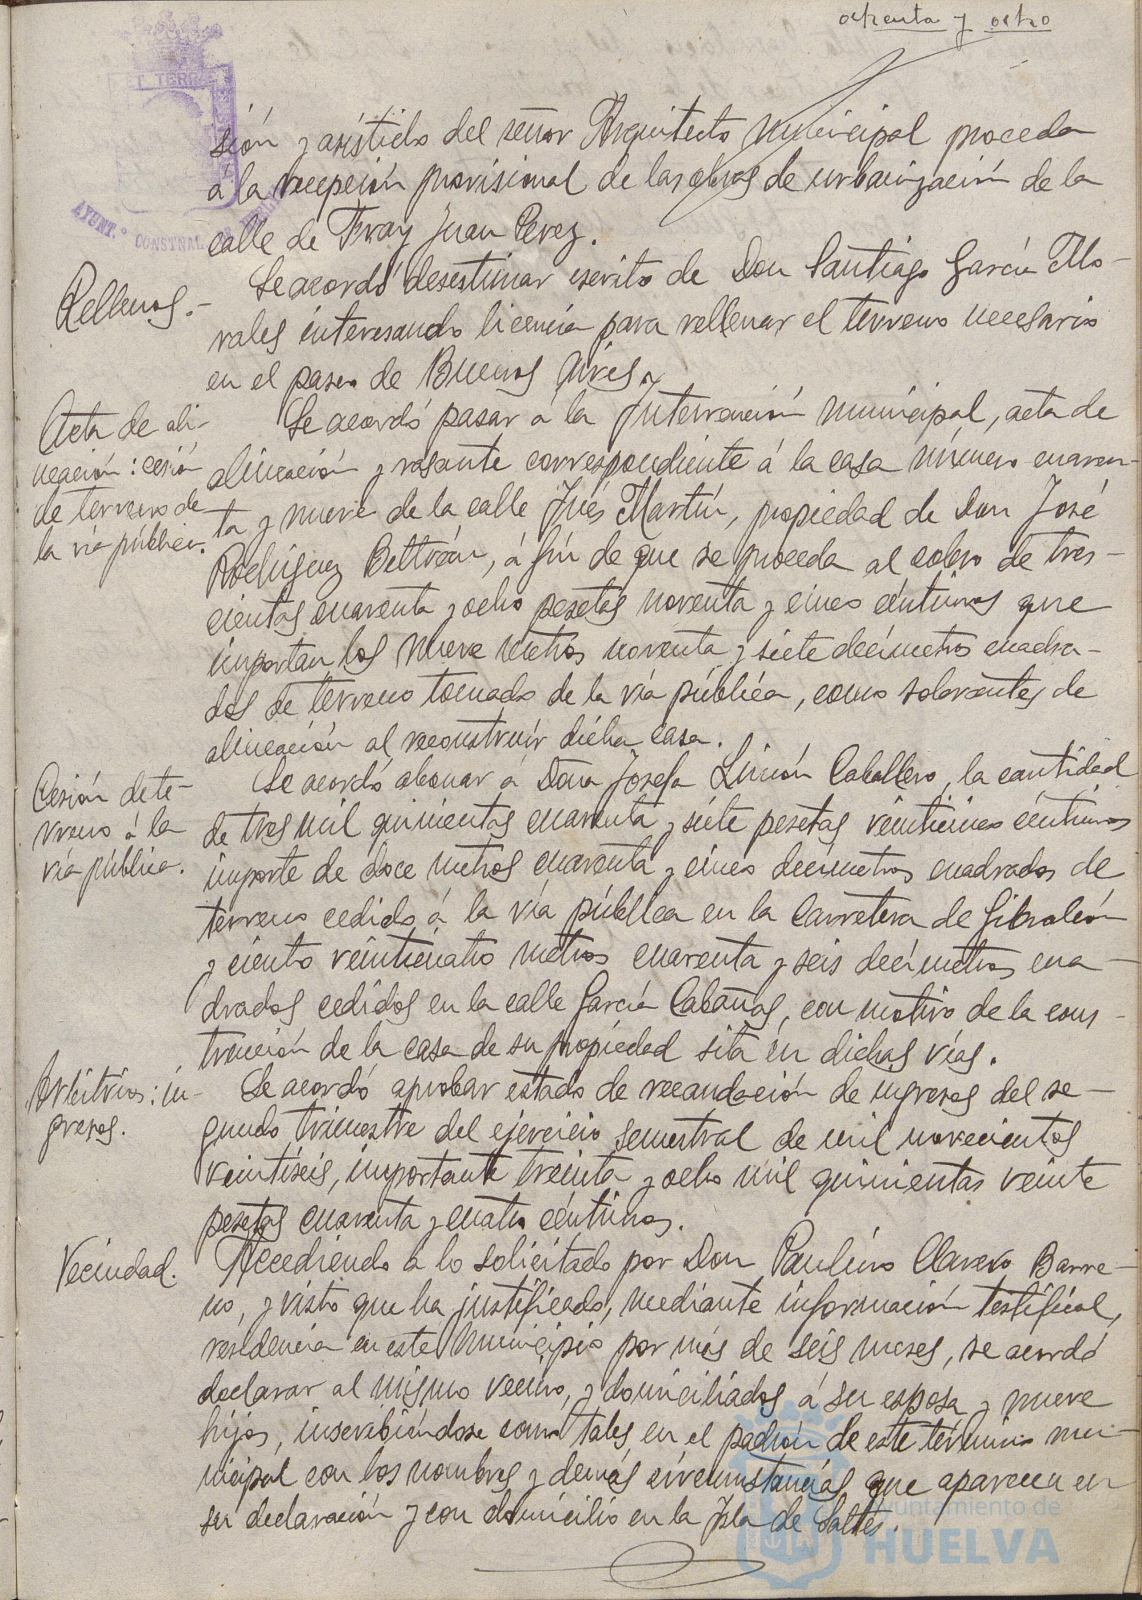 ochenta y ocho
sión y asistido del señor Arquitecto municipal proceda
a la recepción provisional de las obras de urbanización de la
calle de Fray Juan Perez.
Rellenos.-
Se acordó desestimar escrito de Don Santiago García Mo-
rales interesando licencia para rellenar el terreno necesario
en el paseo de Buenos Aires.
Acta de ali-
neación: cesión
de terreno de
la vía pública.
Se acordó pasar á la Intervención municipal, acta de
alineación y rasante correspondiente á la casa número cuaren-
ta y nueve de la calle Inés Martín, propiedad de Don José
Rodríguez Beltrán, á fín de que se proceda al cobro de tres-
cientas cuarenta y ocho pesetas noventa y cinco céntimos que
importan los nueve metros noventa y siete decímetros cuadra-
dos de terreno tomado de la vía pública, como sobrantes de
alineación al reconstruir dicha casa.
Cesión de te-
rreno á la
vía pública.
Se acordó abonar á Doña Josefa Limón Caballero, la cantidad
de tres mil quinientas cuarenta y siete pesetas veinticinco céntimos
importe de doce metros cuarenta y cinco decímetros cuadrados de
terreno cedido á la vía pública en la Carretera de Gibraleón
y ciento veinticuatro metros cuarenta y seis decímetros cua-
drados cedidos en la calle García Cabañas, con motivo de la cons-
trucción de la casa de su propiedad sita en dichas vías.
Arbitrios: in-
gresos.
Se acordó aprobar estado de recaudación de ingresos del se-
gundo trimestre del ejercicio semestral de mil novecientos
veintiseis, importante treinta y ocho mil quinientas veinte
pesetas cuarenta y cuatro céntimos.
Vecindad.
Accediendo a lo solicitado por Don Paulino Clavero Barre-
no, y visto que ha justificado, mediante información testifical,
residencia en este Municipio por más de seis meses, se acordó
declarar al mismo vecino, y domiciliados á su esposa y nueve
hijos, inscribiéndose como tales en el padrón de este término mu-
nicipal con los nombres y demás circunstancias que aparecen en
su declaración y con domicilio en la Isla de Saltés.
Ayuntamiento de
HUELVA